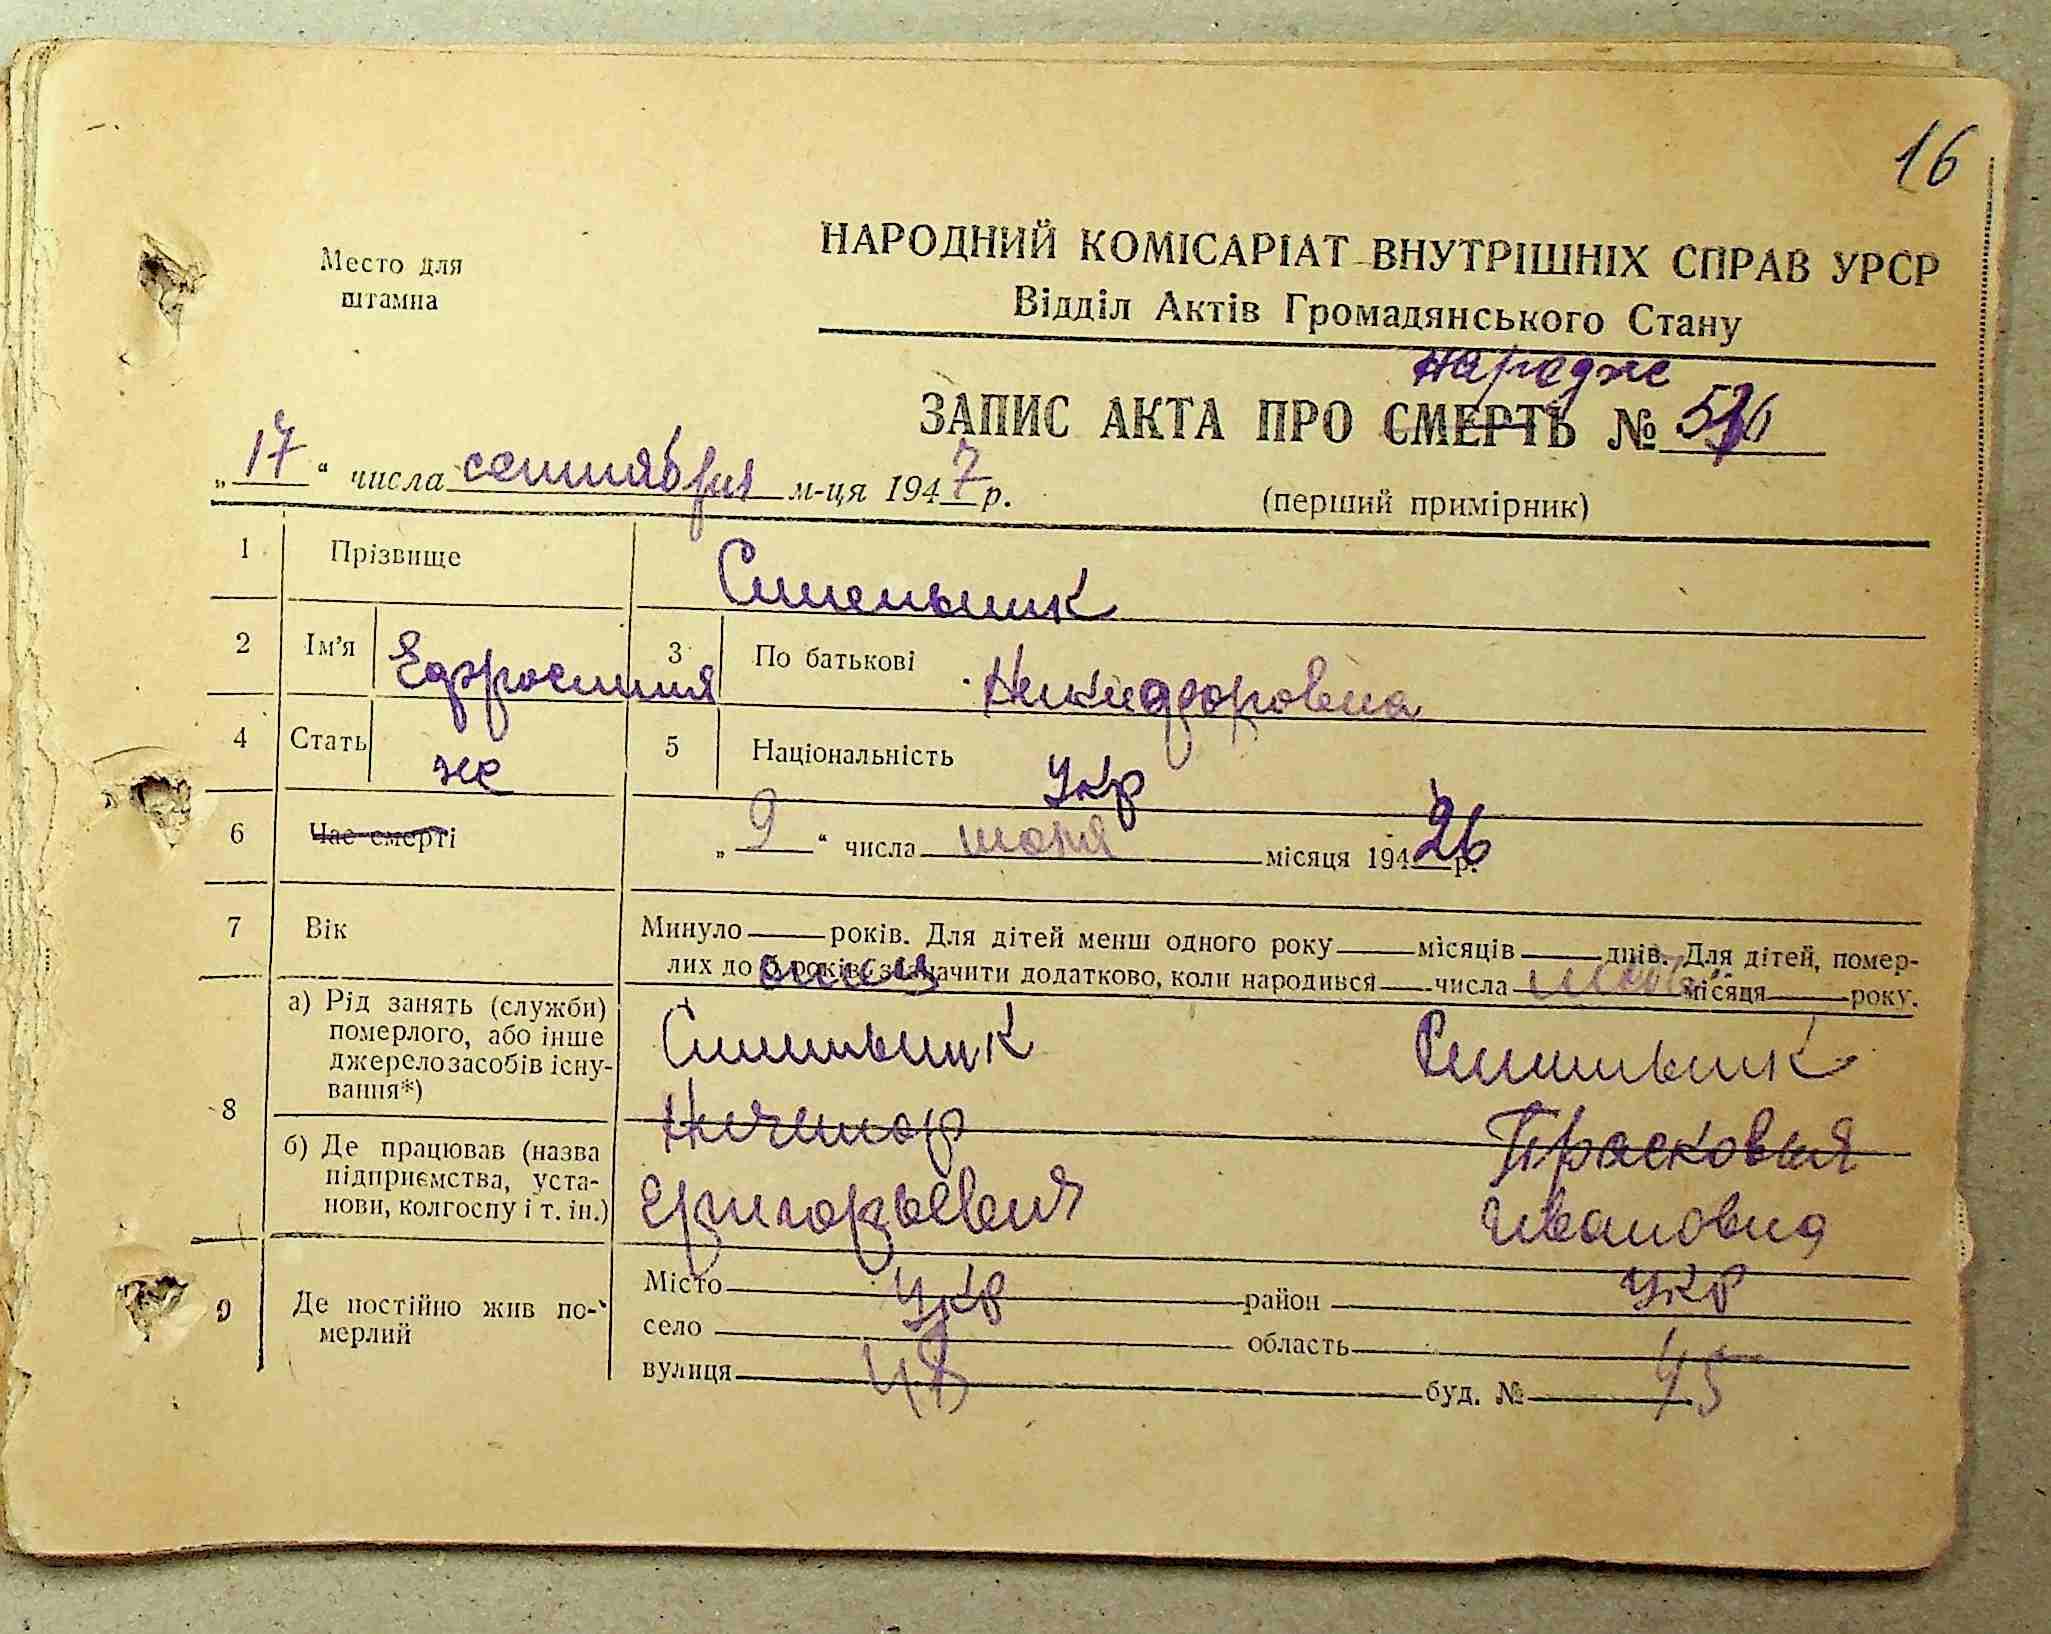 16
Место для
штампа
НАРОДНИЙ КОМІСАРІАТ ВНУТРІШНІХ СПРАВ УРСР
Відділ Актів Громадянського Стану
народже
ЗАПИС АКТА ПРО СМЕРТЬ №
„17“ числа сентября м-ця 1947 р.
(перший примірник)
1 Прізвище Синельник
2 Ім'я Ефросиния 3 По батькові Никифоровна
4 Стать же 5 Національність Укр
6 Час смерті „9“ числа июня місяця 194 26 р.
7 Вік Минуло ___ років. Для дітей менш одного року ___ місяців ___ днів. Для дітей, помер-
лих до 5 років, зазначити додатково, коли народився ___ числа ___ місяця ___ року.
отец мать
8 а) Рід занять (служби)
померлого, або інше
джерело засобів існу-
вання*)
Синельник Синельник
б) Де працював (назва
підприємства, уста-
нови, колгоспу і т. ін.)
Прасковья
Григорьевич Ивановна
9 Де постійно жив по-
мерлий
Місто Укр район Укр
село область
вулиця 48 буд. № 45